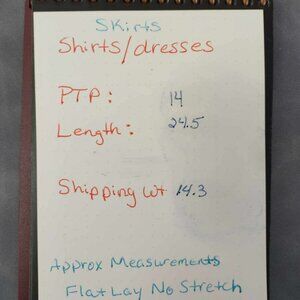 Skirts
Shirts/dresses
PTP: 14
Length: 24.5
Shipping wt 14.3
Approx Measurements
Flat Lay No Stretch